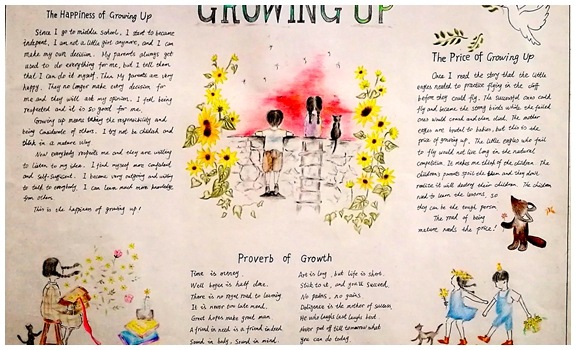 GROWING UP
The Happiness of Growing Up
Since I go to middle school, I start to become
indepent. I am not a little girl anymore, and I can
make my own decision. My parents always get
used to do everything for me, but I tell them
that I can do it myself. Then My parents are very
happy. They no longer make every decision for
me and they will ask my opinion. I feel being
respected and it is so good for me.
Growing up means the responsibility and
being considerate of others. I try not be childish and
think in a mature way.
Now everybody respects me and they are willing
to listen to my idea. I find myself more confident
and self-sufficient. I become very outgoing and willing
to talk to everybody. I can learn much more knowledge
from others.
This is the happiness of growing up!
The Price of Growing Up
Once I read the story that the little
eagles needed to practise flying in the cliff
before they could fly. The successful ones could
fly and become the strong birds while the failed
ones would and then died. The mother
eagles are brutal to babies, but this is the
price of growing up. The little eagles who fail
to fly would not live long in the natural
competition. It makes me think of the children. The
children's parents spoil the and they don't
realize it will destroy their children. The children
need to learn the lessons, so
they can be the tough person
The road of being
mature needs the price!
Proverb of Growth
Time is money.
Well begun is half done.
There is no royal road to learning.
It is never too late mend.
Great hopes make great man
A friend in need is a friend indeed
Sound in body, sound in mind.
Art is long, but life is short.
Stick to it, and you'll succeed.
No pains, no gains
Diligence is the mother of success
He who laughs last laughs best
Never put off till tomorrow what
you can do today